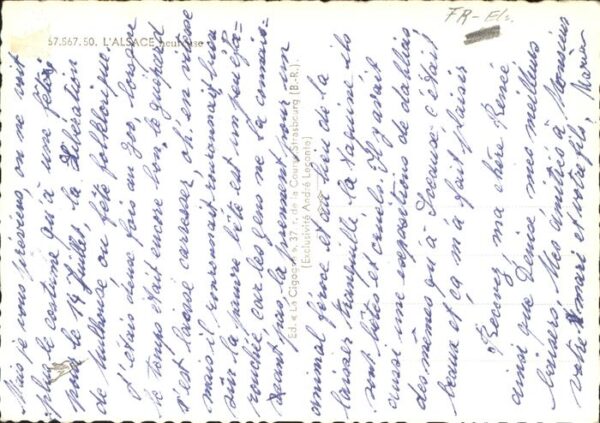 67.567.50. L'ALSACE
FR-Els.
Mais je vous préviens, on ne voit
plus le costume qu'à une fête
pour le 14 juillet, la Libération
de Mulhouse ou fête folklorique
J'étais d'une fois au zoo, lorsque
le temps était encore bon, le guépard
s'est laissé caresser, oh, en vitesse
mais il ronronnait, ronronnait bien
sûr la pauvre bête est un peu
car les gens ne la
pas, la prenant pour un
animal féroce et au lieu de la
laisser tranquille la taquine ils
sont bêtes et cruels. Il y avait
aussi une exposition de dahlias
des mêmes qu'à Sceaux c'était
beau et ça m'a fait plaisir
Recevez ma chère René
ainsi que Denise mes meilleurs
baisers, Mes amitiés à Monsieur
votre mari et votre fils,
Ed. « La Cigogne », 37, r. de la Course, Strasbourg (B.-R.)
(Exclusivité André Leconte)